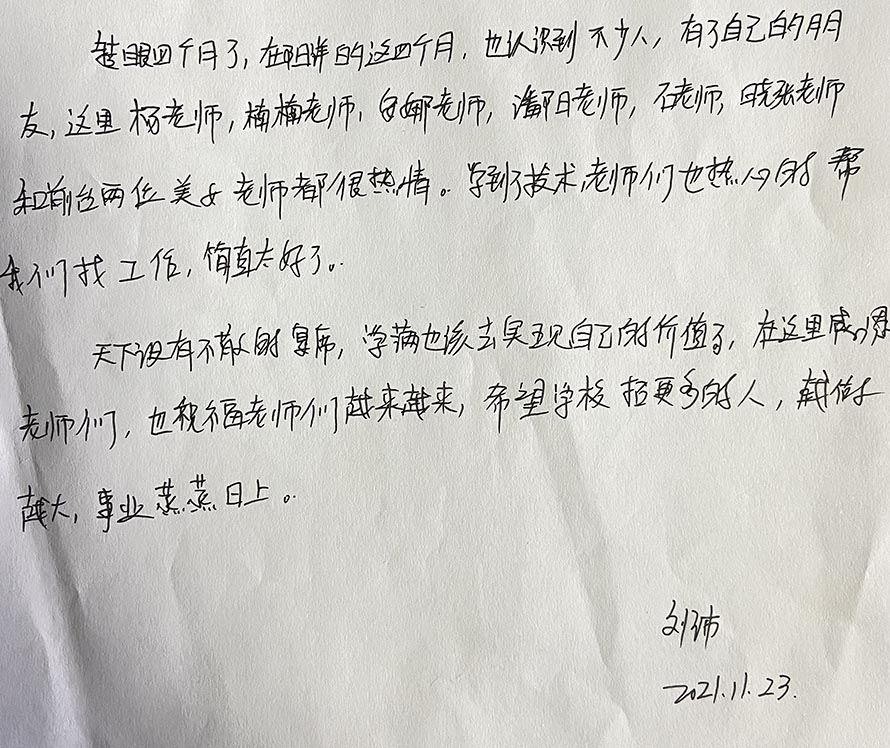 转眼四个月了，在阳洋的这四个月，也认识到不少人，有了自己的朋
友，这里杨老师，楠楠老师，安娜老师，潘阳老师，石老师，晓张老师
和前台两位美女老师都很热情。学到了技术，老师们也热心的帮
我们找工作，简直太好了。
天下没有不散的宴席，学满也该去实现自己的价值了，在这里感恩
老师们，也祝福老师们越来越来，希望学校招更多的人，越做
越大，事业蒸蒸日上。
刘
2021.11.23.